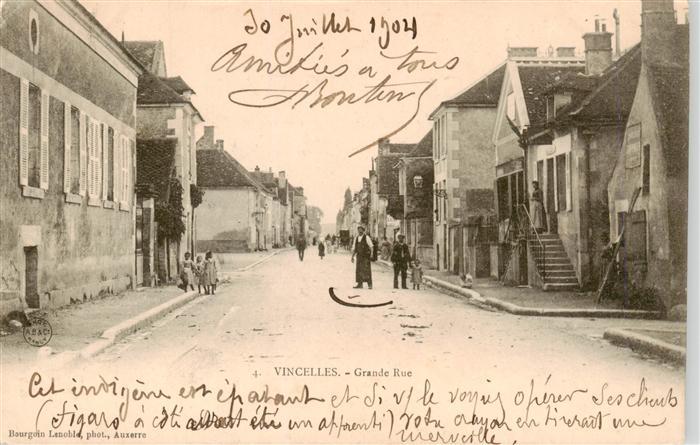 30 Juillet 1904
Amitiés à tous
4. VINCELLES. - Grande Rue
Cet indigène est épatant et si v/ le voyiez opérer ses clients
(Figaro à côté aurait été un apprenti) votre crayon en tirerait une
merveille.
Bourgoin Lenoble, phot., Auxerre
A.B & Cie